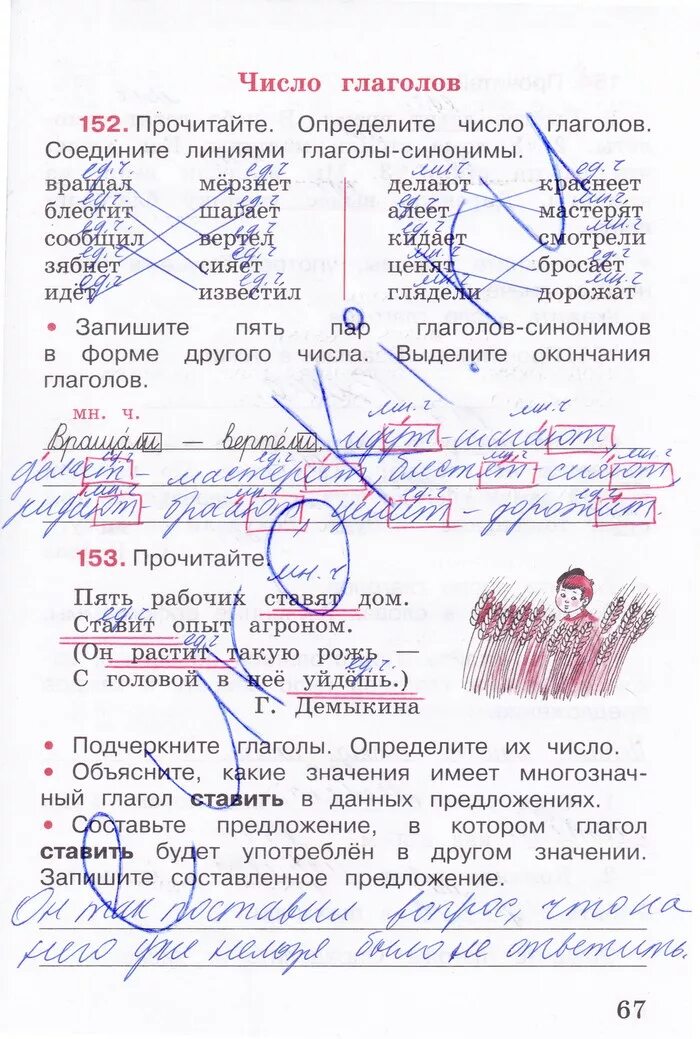 Число глаголов
152. Прочитайте. Определите число глаголов.
Соедините линиями глаголы-синонимы.
ед.ч ед.ч мн.ч ед.ч
вращал мёрзнет делают краснеет
ед.ч ед.ч ед.ч мн.ч
блестит шагает алеет мастерят
ед.ч ед.ч ед.ч мн.ч
сообщил вертел кидает смотрели
ед.ч ед.ч мн.ч ед.ч
зябнет сияет ценят бросает
ед.ч ед.ч мн.ч мн.ч
идёт известил глядели дорожат
• Запишите пять пар глаголов-синонимов
в форме другого числа. Выделите окончания
глаголов.
мн. ч. мн.ч мн.ч
Вращали — вертели, идут - шагают,
ед.ч ед.ч мн.ч мн.ч
делает - мастерит, блестят - сияют,
мн.ч мн.ч ед.ч ед.ч
кидают - бросают, ценит - дорожит.
153. Прочитайте.
мн. ч
Пять рабочих ставят дом.
ед.ч
Ставит опыт агроном.
ед.ч
(Он растит такую рожь —
ед.ч
С головой в неё уйдёшь.)
Г. Демыкина
• Подчеркните глаголы. Определите их число.
• Объясните, какие значения имеет многознач-
ный глагол ставить в данных предложениях.
• Составьте предложение, в котором глагол
ставить будет употреблён в другом значении.
Запишите составленное предложение.
Он так поставил вопрос, что на
него уже нельзя было не ответить.
67